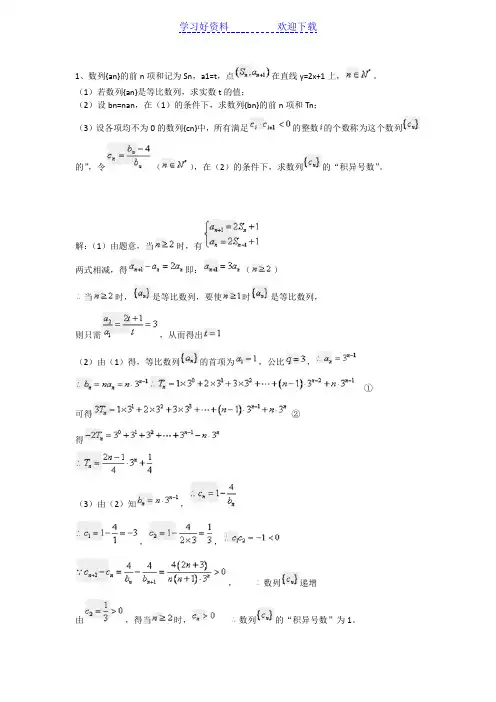 学习好资料 欢迎下载
1、数列{an}的前 n 项和记为 Sn，a1=t，点(Sₙ,aₙ₊₁)在直线 y=2x+1 上，n∈N*。
（1）若数列{an}是等比数列，求实数 t 的值；
（2）设 bn=nan，在（1）的条件下，求数列{bn}的前 n 项和 Tn；
（3）设各项均不为 0 的数列{cn}中，所有满足 cᵢ·cᵢ₊₁<0 的整数 i 的个数称为这个数列{cₙ}
的"，令 cₙ=(bₙ-4)/bₙ（n∈N*），在（2）的条件下，求数列{cₙ}的"积异号数"。
解：（1）由题意，当 n≥2 时，有 {aₙ₊₁=2Sₙ+1
aₙ=2Sₙ₋₁+1
两式相减，得 aₙ₊₁-aₙ=2aₙ 即：aₙ₊₁=3aₙ（n≥2）
∴当 n≥2 时，{aₙ}是等比数列，要使 n≥1 时{aₙ}是等比数列，
则只需 a₂/a₁=(2t+1)/t=3，从而得出 t=1
（2）由（1）得，等比数列{aₙ}的首项为 a₁=1，公比 q=3，∴aₙ=3ⁿ⁻¹
∴bₙ=naₙ=n·3ⁿ⁻¹ ∴Tₙ=1×3⁰+2×3¹+3×3²+⋯+(n-1)·3ⁿ⁻²+n·3ⁿ⁻¹ ①
可得 3Tₙ=1×3¹+2×3²+3×3³+⋯+(n-1)·3ⁿ⁻¹+n·3ⁿ ②
得 -2Tₙ=3⁰+3¹+3²+⋯+3ⁿ⁻¹-n·3ⁿ
∴Tₙ=(2n-1)/4·3ⁿ+1/4
（3）由（2）知 bₙ=n·3ⁿ⁻¹，∴cₙ=1-4/bₙ
∴c₁=1-4/1=-3，c₂=1-4/(2×3)=1/3，∴c₁c₂=-1<0
∵cₙ₊₁-cₙ=4/bₙ-4/bₙ₊₁=4(2n+3)/(n(n+1)·3ⁿ)>0， ∴数列{cₙ}递增
由 c₂=1/3>0，得当 n≥2 时，cₙ>0 ∴数列{cₙ}的"积异号数"为 1。